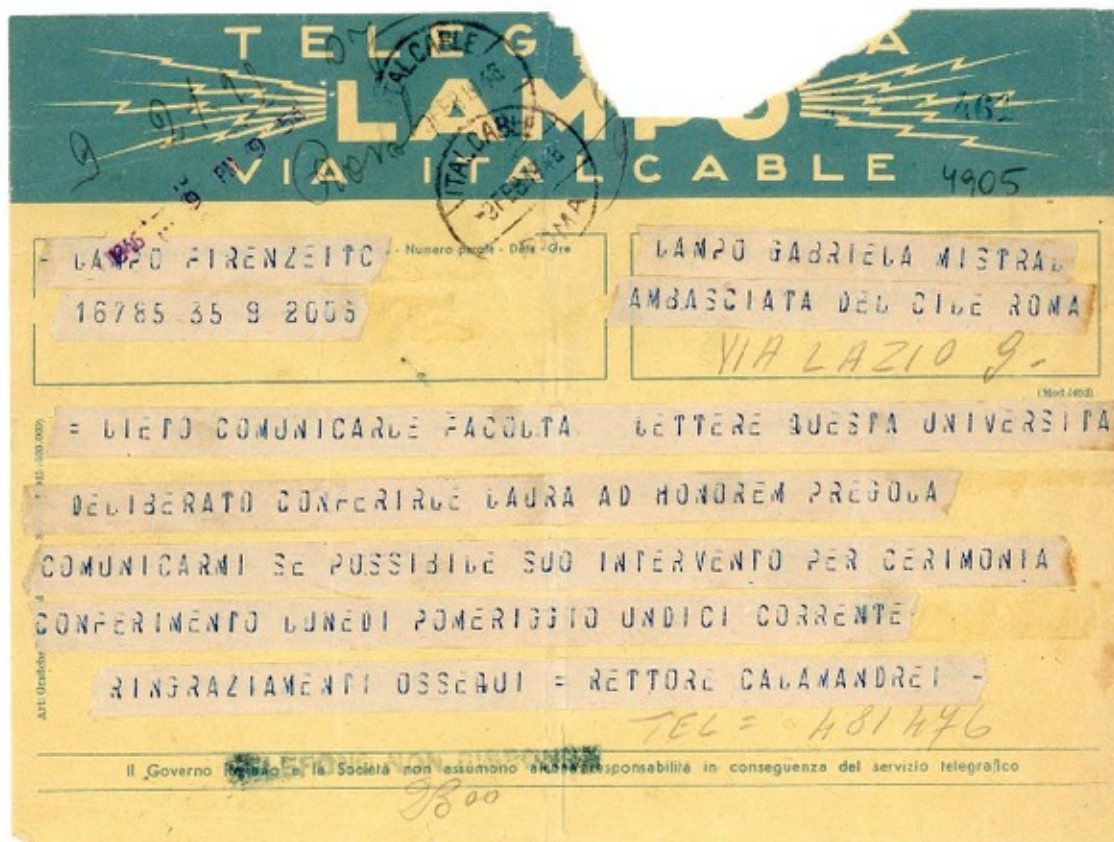 TELEG A
LAMPO
VIA ITALCABLE
ITALCABLE
ITALCABLE
461
4905
- Numero parole - Data - Ore
- LAMPO FIRENZEITC
16785 35 9 2005
LAMPO GABRIELA MISTRAL
AMBASCIATA DEL CILE ROMA
VIA LAZIO 9.
(Mod. 1403)
= LIETO COMUNICARLE FACOLTA LETTERE QUESTA UNIVERSITA
DELIBERATO CONFERIRLE LAURA AD HONOREM PREGOLA
COMUNICARMI SE POSSIBILE SUO INTERVENTO PER CERIMONIA
CONFERIMENTO LUNEDI POMERIGGIO UNDICI CORRENTE
RINGRAZIAMENTI OSSEQUI = RETTORE CALAMANDREI -
TEL = 481476
TELEFONO NON RISPONDE
Il Governo Italiano e la Società non assumono alcuna responsabilità in conseguenza del servizio telegrafico
2300
Arti Grafiche